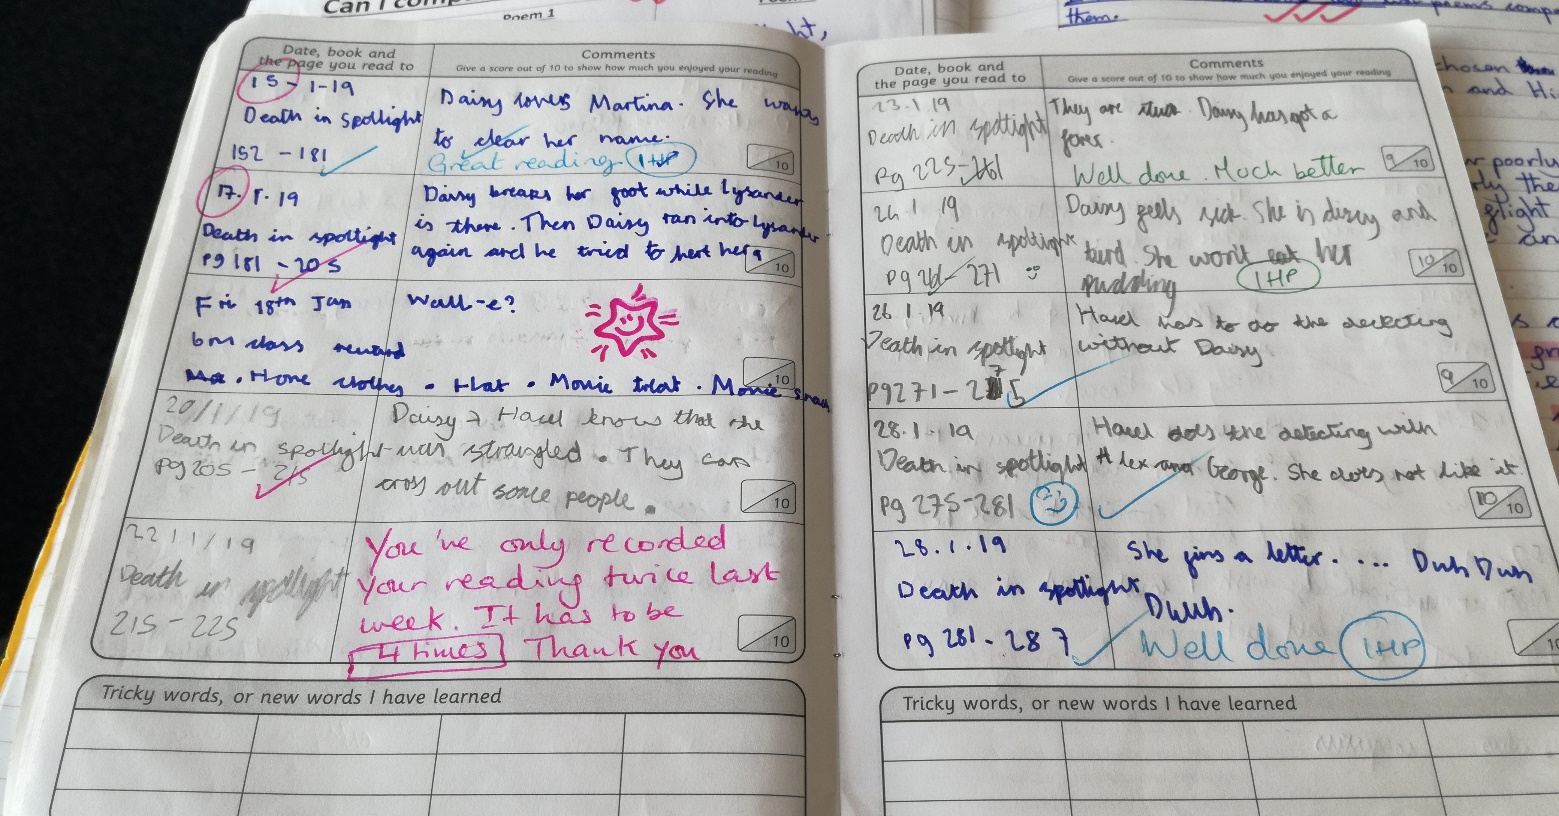 Can I
Poem 1
Date, book and
the page you read to
Comments
Give a score out of 10 to show how much you enjoyed your reading
15-1-19
Death in Spotlight
152 - 181
Daisy loves Martina. She wants
to clear her name.
Great reading 1HP
10
17.1.19
Death in spotlight
pg 181 - 205
Daisy breaks her foot while Lysander
is there. Then Daisy ran into Lysander
again and he tried to hert her
10
Fri 18th Jan
6M class reward
Wall-e?
. Home clothes . Hat . Movie treat . Movie snack
10
20/1/19
Death in spotlight
pg 205 - 215
Daisy + Hazel knows that she
was strangled. They can
cross out some people.
10
22/1/19
Death in spotlight
215 - 225
You've only recorded
your reading twice last
week. It has to be
4 times Thank you
10
Tricky words, or new words I have learned
Date, book and
the page you read to
Comments
Give a score out of 10 to show how much you enjoyed your reading
23.1.19
Death in spotlight
Pg 225-261
They are stuck. Daisy has got a
fever.
Well done. Much better
9/10
24.1.19
Death in spotlight
pg 261 - 271
Daisy feels sick. She is dizzy and
tierd. She won't eat her
pudding
1HP
10/10
26.1.19
Death in spotlight
pg 271 - 275
Hazel has to do the detecting
without Daisy.
9/10
28.1.19
Death in spotlight
pg 275-281
Hazel does the detecting with
Alex and George. She does not like it.
10/10
28.1.19
Death in spotlight
pg 281 - 287
She fins a letter.... Duh Duh
Duuh.
Well done 1HP
10
Tricky words, or new words I have learned
them.
chosen
poorly